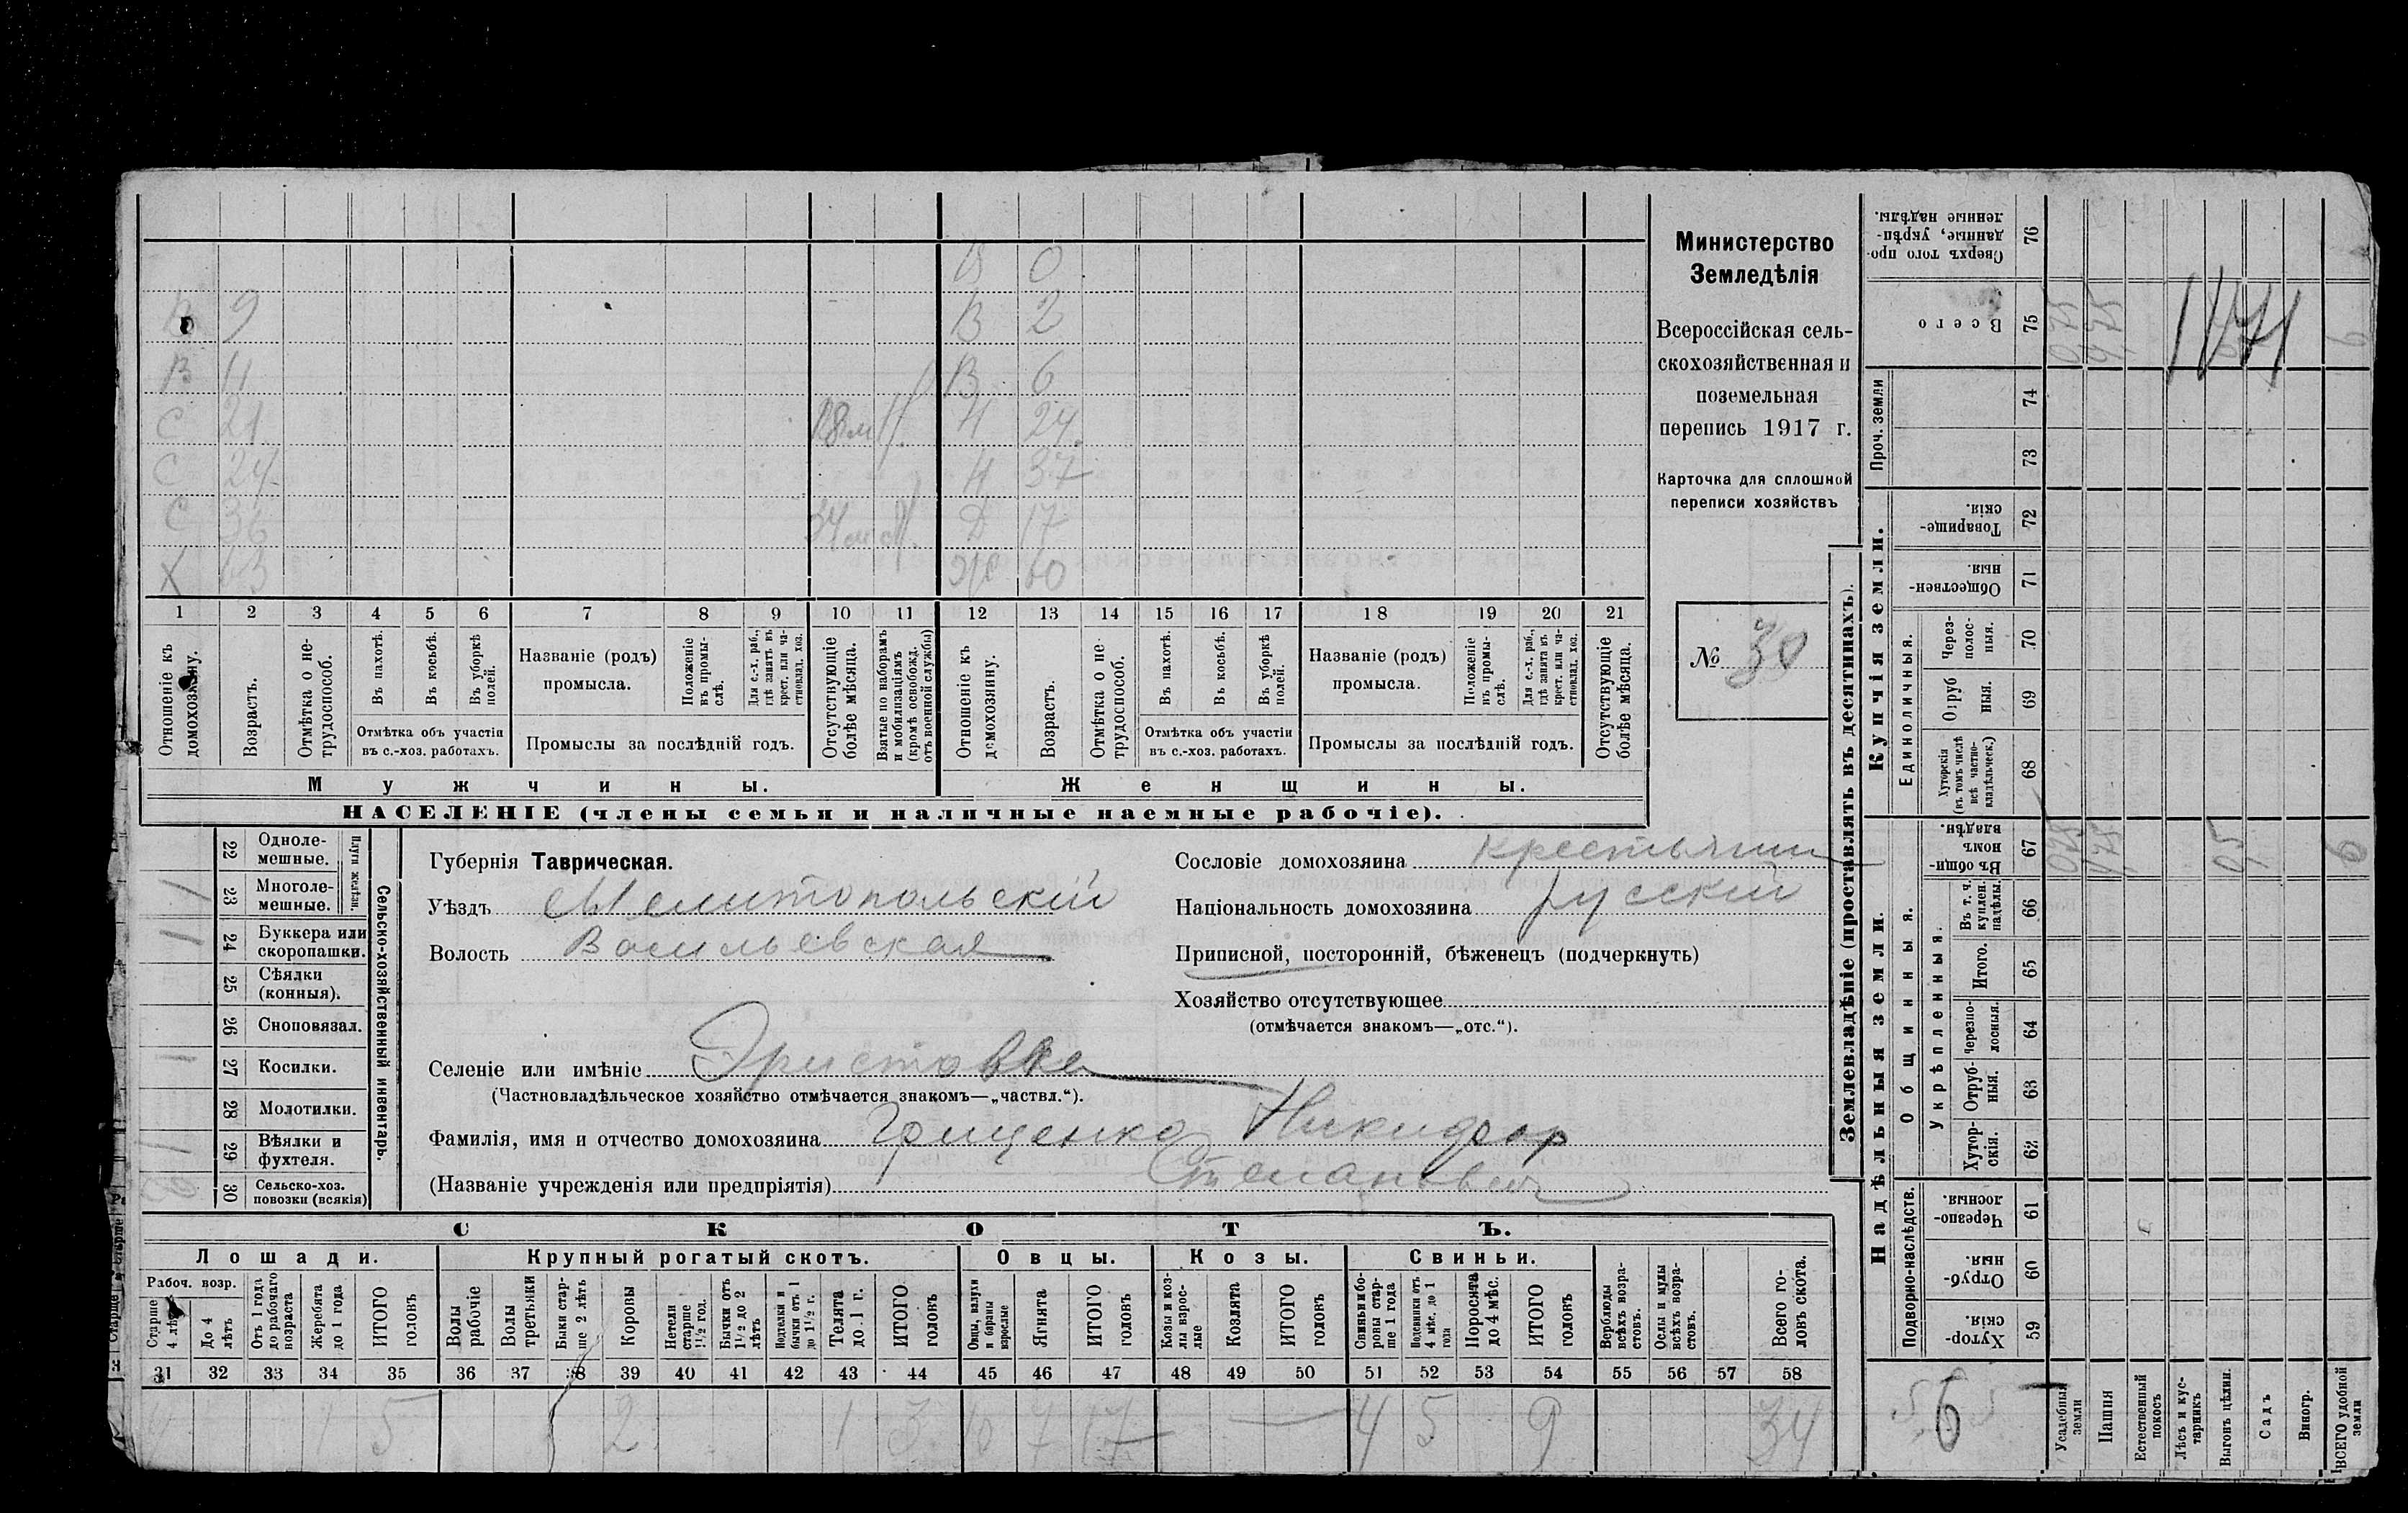 Министерство
Земледѣлія
Всероссійская сель-
скохозяйственная и
поземельная
перепись 1917 г.
Карточка для сплошной
переписи хозяйствъ
№ 30
В 0
В 9 В 2
В 11 В 6
С 21 18 м Н 24
С 24 Н 37
С 36 34 м Д 17
Х 63 Ж 60
1 2 3 4 5 6 7 8 9 10 11 12 13 14 15 16 17 18 19 20 21
Отношеніе къ домохозяину.
Возрастъ.
Отмѣтка о не-
трудоспособ.
Въ пахотѣ.
Въ косьбѣ.
Въ уборкѣ
полей.
Отмѣтка объ участіи
въ с.-хоз. работахъ.
Названіе (родъ)
промысла.
Положеніе
въ промы-
слѣ.
Для с.-х. раб.,
гдѣ занятъ въ
крест. или ча-
стновлад. хоз.
Промыслы за послѣдній годъ.
Отсутствующіе
болѣе мѣсяца.
Взятые по наборамъ
и мобилизаціямъ
(кромѣ освобожд.
отъ военной службы)
Отношеніе къ
домохозяину.
Возрастъ.
Отмѣтка о не-
трудоспособ.
Въ пахотѣ.
Въ косьбѣ.
Въ уборкѣ
полей.
Отмѣтка объ участіи
въ с.-хоз. работахъ.
Названіе (родъ)
промысла.
Положеніе
въ промы-
слѣ.
Для с.-х. раб.,
гдѣ занята въ
крест. или ча-
стновлад. хоз.
Промыслы за послѣдній годъ.
Отсутствующіе
болѣе мѣсяца.
Мужчины.
Женщины.
НАСЕЛЕНІЕ (члены семьи и наличные наемные рабочіе).
Сельско-хозяйственный инвентарь.
Плуги желѣзн.
22 Одноле-
мешные.
23 Многоле-
мешные. 1
24 Буккера или
скоропашки. 1
25 Сѣялки
(конныя).
26 Сноповязал.
27 Косилки. 1
28 Молотилки.
29 Вѣялки и
фухтеля. 1
30 Сельско-хоз.
повозки (всякія)
Губернія Таврическая.
Уѣздъ Мелитопольскій
Волость Васильевская
Селеніе или имѣніе Эристовка
(Частновладѣльческое хозяйство отмѣчается знакомъ—„частвл.“).
Фамилія, имя и отчество домохозяина Грищенко Никифор
(Названіе учрежденія или предпріятія) Степанович
Сословіе домохозяина крестьянин
Національность домохозяина русскій
Приписной, посторонній, бѣженецъ (подчеркнуть)
Хозяйство отсутствующее
(отмѣчается знакомъ—„отс.“).
СКОТЪ.
Лошади.
Рабоч. возр.
Старше
4 лѣтъ
До 4
лѣтъ
Отъ 1 года
до рабочаго
возраста
Жеребята
до 1 года
ИТОГО
головъ
Крупный рогатый скотъ.
Волы
рабочіе
Волы
третьяки
Быки стар-
ше 2 лѣтъ
Коровы
Нетели
старше
1½ год.
Бычки отъ
1½ до 2
лѣтъ
Подтелки и
бычки отъ 1
до 1½ г.
Телята
до 1 г.
ИТОГО
головъ
Овцы.
Овцы, валухи
и бараны
взрослые
Ягнята
ИТОГО
головъ
Козы.
Козы и коз-
лы взрос-
лые
Козлята
ИТОГО
головъ
Свиньи.
Свиньи и бо-
ровы стар-
ше 1 года
Подсвинки отъ
4 мѣс. до 1
года
Поросята
до 4 мѣс.
ИТОГО
головъ
Верблюды
всѣхъ возра-
стовъ.
Ослы и мулы
всѣхъ возра-
стовъ.
Всего го-
ловъ скота.
31 32 33 34 35 36 37 38 39 40 41 42 43 44 45 46 47 48 49 50 51 52 53 54 55 56 57 58
4 1 5 2 1 3 10 7 17 — 4 5 9 34
Землевладѣніе (проставлять въ десятинахъ).
Надѣльныя земли.
Подворно-наслѣдств.
Хутор-
скія. 59
Отруб-
ныя. 60
Черезпо-
лосныя. 61
Общинныя.
Укрѣпленныя.
Хутор-
скія. 62
Отруб-
ныя. 63
Черезпо-
лосныя. 64
Итого. 65
Въ т. ч.
куплен.
надѣлы. 66
Въ общи-
номъ
владѣн. 67
Купчія земли.
Единоличныя.
Хуторскія
(въ томъ числѣ
всѣ частно-
владѣльческ.) 68
Отруб
ныя. 69
Через-
полос-
ныя. 70
Обществен-
ныя. 71
Товарище-
скія. 72
Проч. земли
73
74
Всего 75
Сверхъ того про-
данные, укрѣп-
ленные надѣлы. 76
Усадебныя
земли
Пашня
Естественный
покосъ
Лѣсъ и кус-
тарникъ
Выгонъ цѣлин.
Садъ
Виногр.
ВСЕГО удобной
земли
6